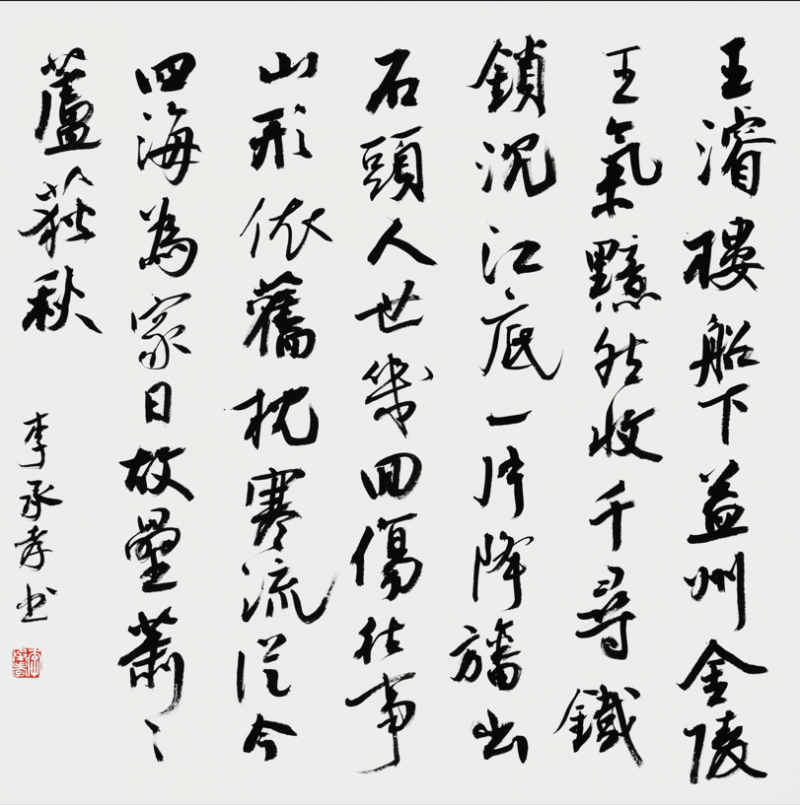 王濬樓船下益州金陵
王氣黯然收千尋鐵
鎖沉江底一片降旛出
石頭人世幾回傷往事
山形依舊枕寒流從今
四海為家日故壘蕭〻
蘆荻秋
李承孝书